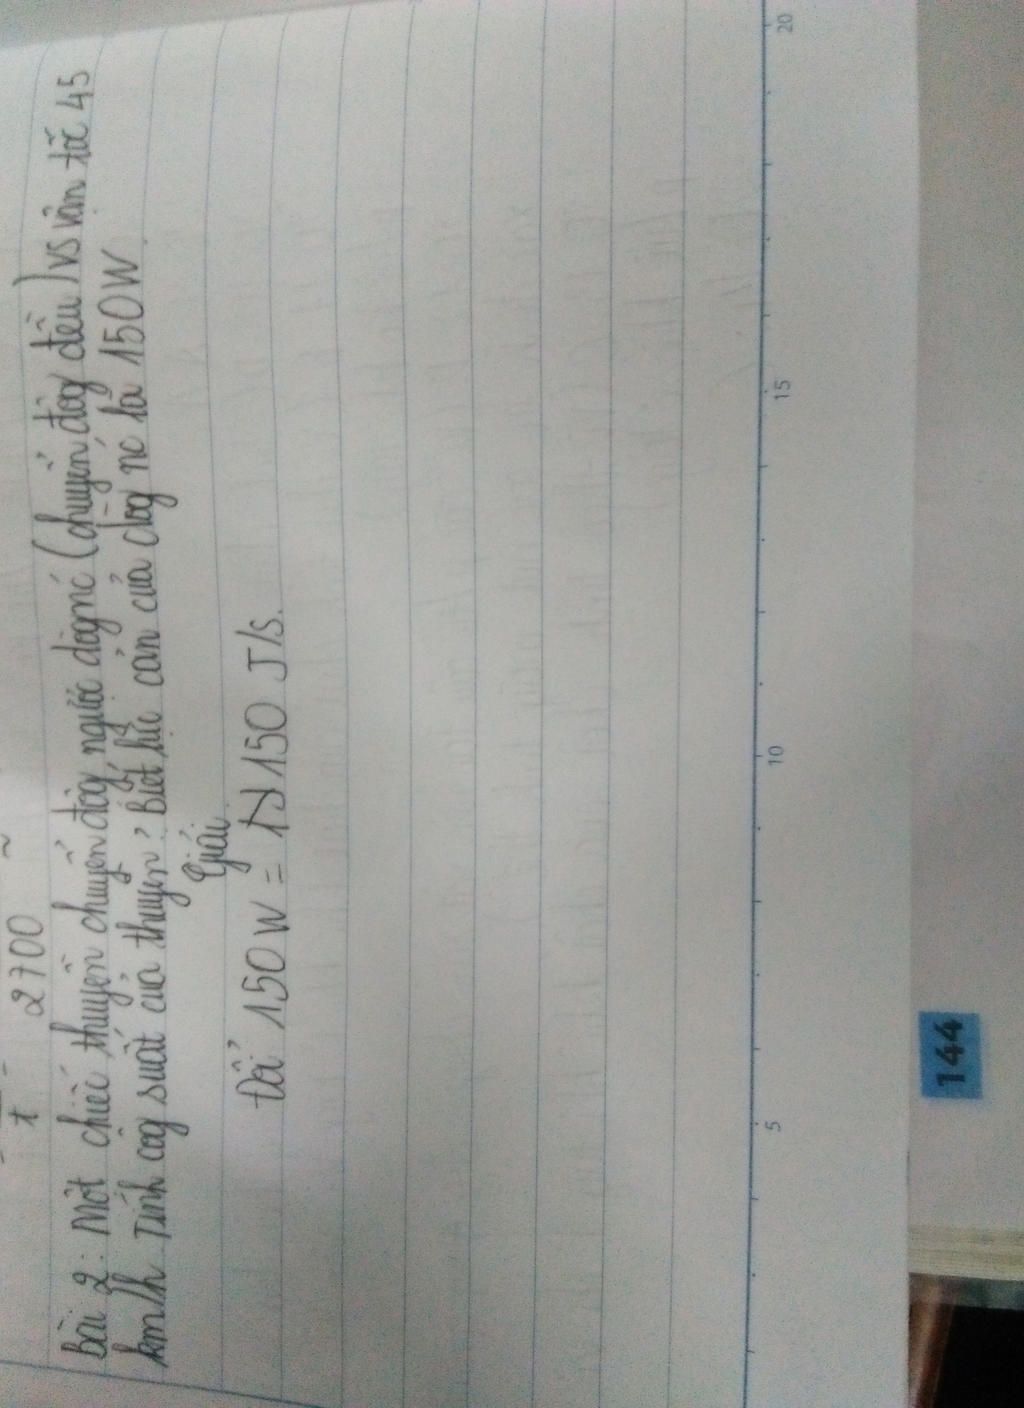 t 2700
Bài 2: Một chiếc thuyền chuyển độg ngược dòg nc (chuyển độg đều) vs vận tốc 45
km/h. Tính côg suất của thuyền? Biết lực cản của dòg nc là 150W.
Giải
Đổi 150W = 150 J/s.
5 10 15 20
144